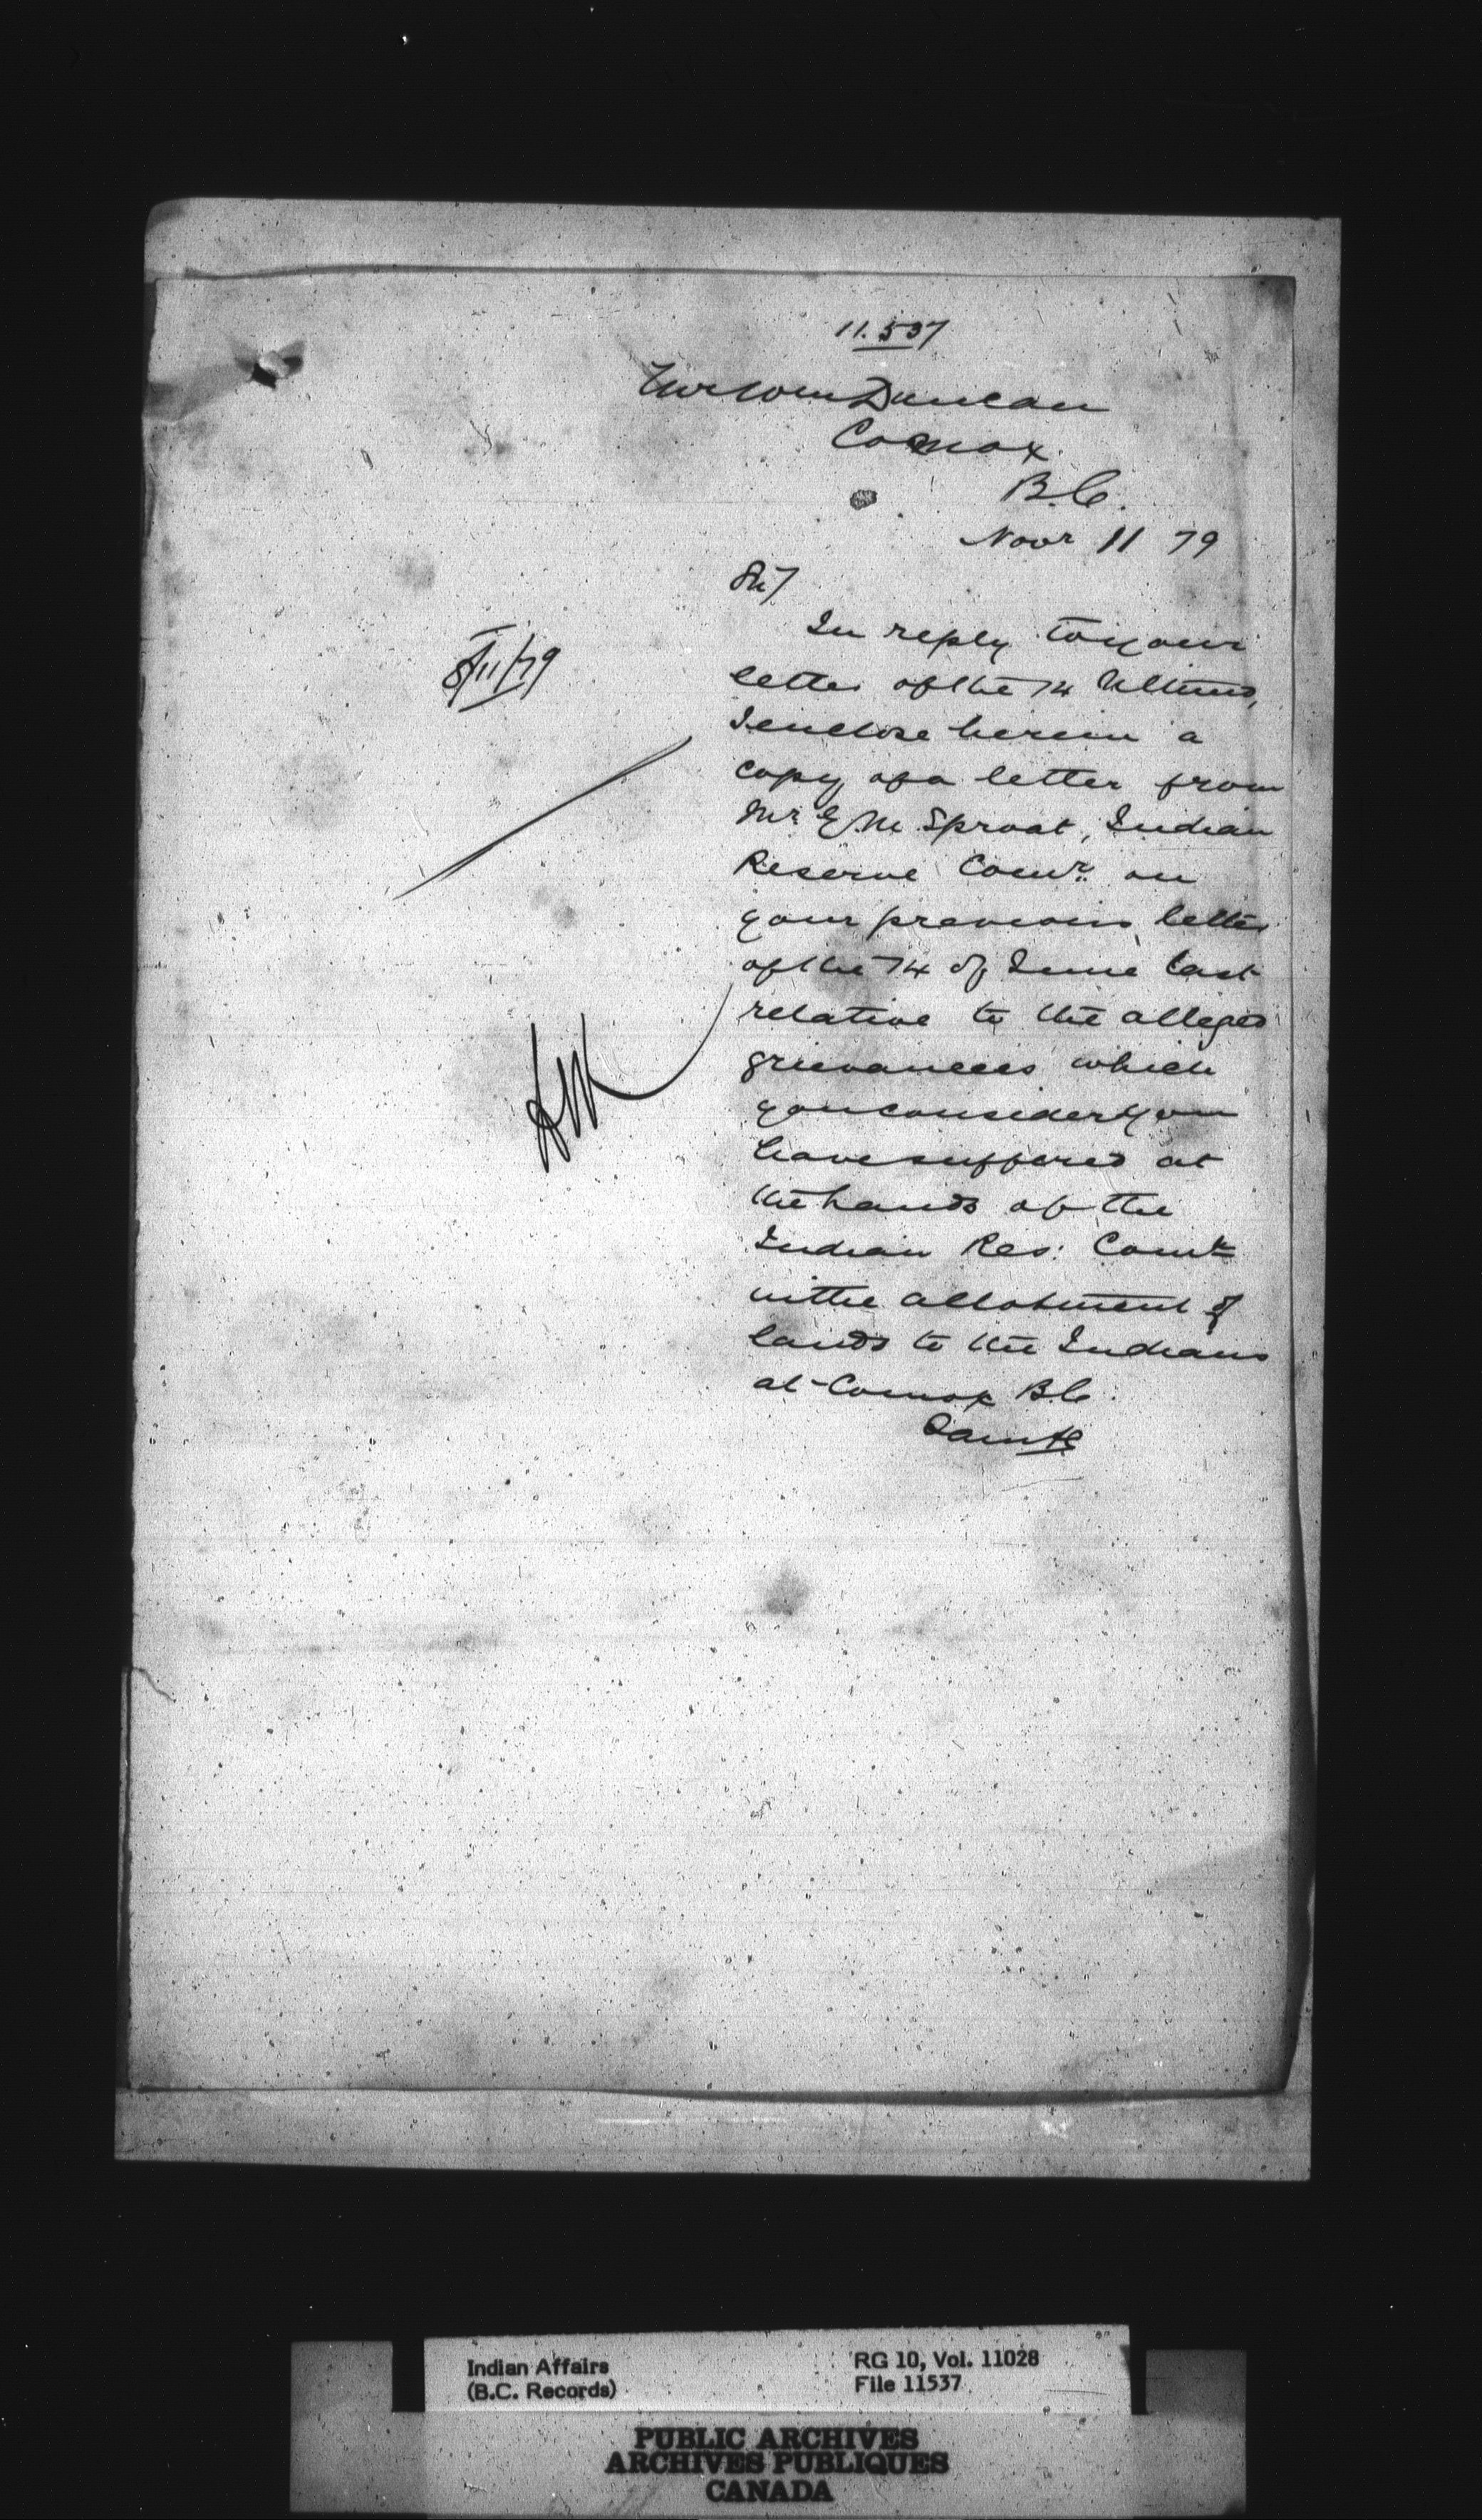 11.537
Mr Wm Duncan
Comox
B.C.
Novr 11 79
Sir
In reply to your
letter of the 14 Ultimo,
I enclose herein a
copy of a letter from
Mr G. M. Sproat, Indian
Reserve Comr. on
your previous letter
of the 14 of June last
relative to the alleged
grievances which
you consider you
have suffered at
the hands of the
Indian Res: Comr
in the allotment of
lands to the Indians
at Comox B.C.
8/11/79
Indian Affairs
(B.C. Records)
RG 10, Vol. 11028
File 11537
PUBLIC ARCHIVES
ARCHIVES PUBLIQUES
CANADA